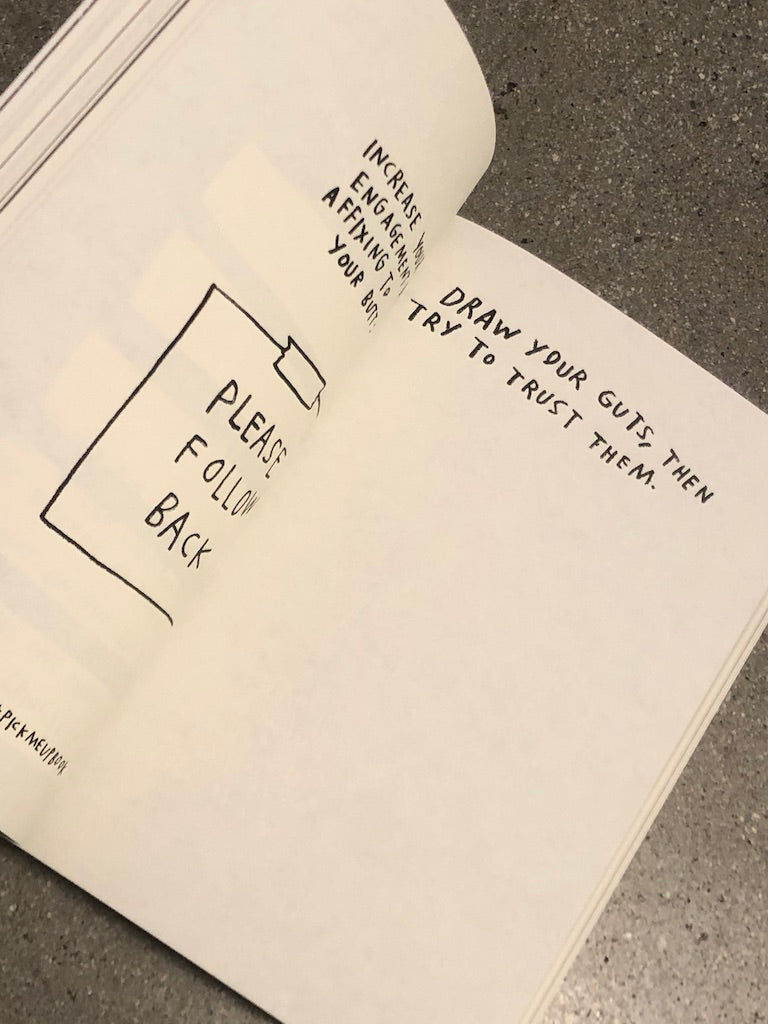 INCREASE YOUR
ENGAGEMENT
AFFIXING TO
YOUR BUTT.
PLEASE
FOLLOW
BACK
#PICKMEUPBOOK
DRAW YOUR GUTS, THEN
TRY TO TRUST THEM.